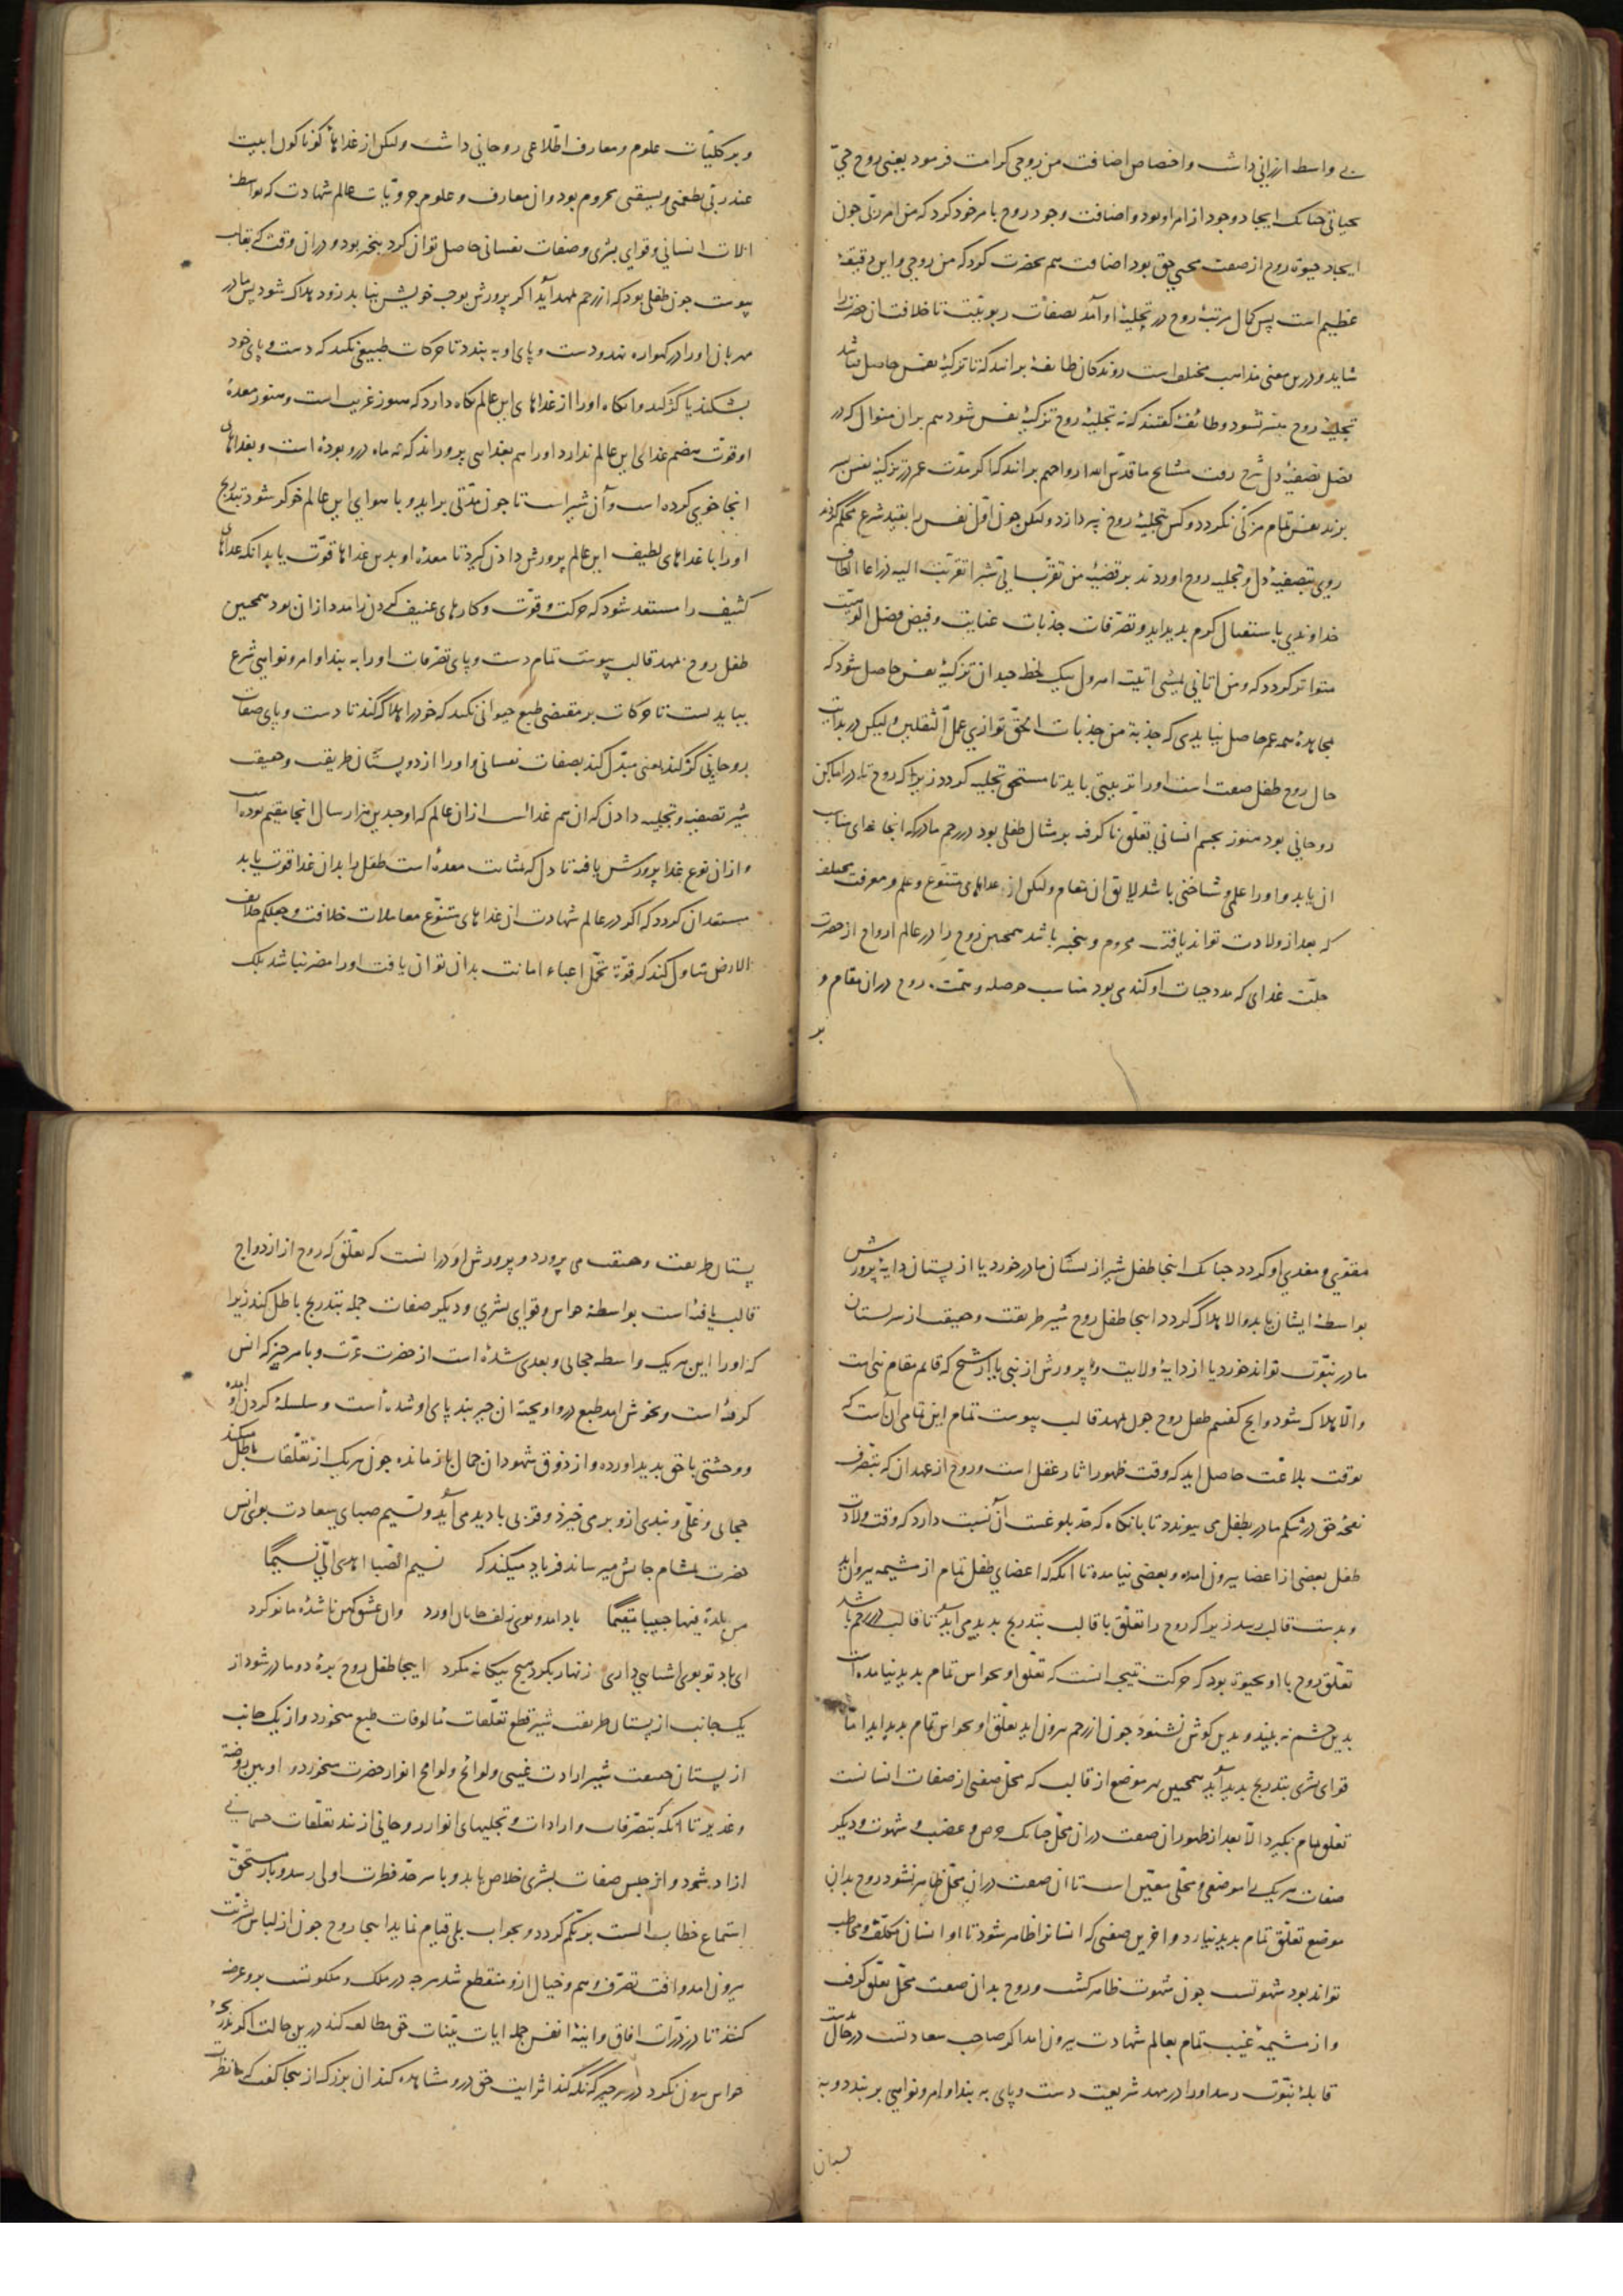 بی واسطه ارزانی داشت و اختصاص اضافت من روحی کرامت فرمود یعنی روح حیّ
بحیاتی چنانک ایجاد وجود از امر او بود و اضافت وجود روح با مر خود کرد که من امر ربّی چون
ایجاد حیوة روح از صفت محیی حق بود اضافت هم بحضرت کرد که من روحی و این دقیقهٔ
عظیم است پس کمال مرتبهٔ روح در تجلیهٔ او آمد بصفات ربوبیّت تا خلافت آن حضرت را
شاید و درین معنی مذاهب مختلف است روندکان طایفهٔ برانند که تا تزکیهٔ نفس حاصل نباشد
تجلیهٔ روح میسر نشود و طائفهٔ کفتند که نه تجلیهٔ روح تزکیهٔ نفس شود هم بران منوال که در
فصل تصفیهٔ دل شرح رفت مشایخ ما قدّس الله ارواحهم برانند که اگر مدّت عمر در تزکیهٔ نفس بسر
برند نفس تمام مزکّی نکردد و کس بتجلیهٔ روح نپردازد ولیکن چون اوّل نفس را بقید شرع محکم کردند
روی بتصفیهٔ دل و تجلیه روح اوردند بر قضیهٔ من تقرّب الیّ شبرا تقرّبت الیه ذراعا الطاف
خداوندی باستقبال کرم بدید اید و تصرّفات جذبات عنایت و فیض فضل الوهیّت
متواتر کردد که و من اتانی یمشی اتیت اهرول بیک لحظه چندان تزکیهٔ نفس حاصل شود که
بمجاهدهٔ همه عمر حاصل نیایدی که جذبة من جذبات الحقّ توازی عمل الثقلین ولیکن در بدایت
حال روح طفل صفت است او را تربیتی باید تا مستحق تجلیه کردد زیرا که روح تا در اماکن
روحانی بود هنوز بجسم انسانی تعلّق ناکرفته بر مثال طفلی بود در رحم مادر که انجا غذای مناسب
ان یابد و او را علمی و شناختی باشد لایق ان مقام ولیکن از غذاهای متنوّع و علم و معرفت مختلف
که بعد از ولادت تواند یافت محروم و بیخبر باشد همچنین روح را در عالم ارواح از حضرت
جلّت غذای که مدد حیات او کندی بود مناسب حوصله و همّت روح دران مقام و
بر
و بر کلیّات علوم و معارف اطّلاعی روحانی داشت ولیکن از غذاهاء کوناکون ابیت
عند ربّی یطعمنی و یسقینی محروم بود و از معارف و علوم جزویّات عالم شهادت که بواسطهٔ
الات انسانی و قوای بشری و صفات نفسانی حاصل توان کرد بیخبر بود و دران وقت که بقالب
پیوست چون طفلی بود که از رحم بمهد آید اکر پرورش بوجب خویش نیابد زود هلاک شود پس مادر
مهربان او را در کهواره نهد و دست و پای او به بندد تا حرکات طبیعی نکند که دست و پای خود
بشکند یا کژ کند و انکاه او را از غذاهای این عالم نکاه دارد که هنوز غریب است و هنوز معدهٔ
او قوّت هضم غذای این عالم ندارد او را هم بغذا می پروراند که نه ماه درو بوده است و بغداهای
انجا خوی کرده است و آن شیر است تا چون مدّتی براید و با هوای این عالم خوکر شود بتدریج
او را با غذاهای لطیف این عالم پرورش دادن کیرد تا معدهٔ او بدین غذاها قوّت یابد انکه غذاهای
کثیف را مستعد شود که حرکت و قوّت و کارهای عنیف کردن را مدد ازان بود همچنین
طفل روح بمهد قالب پیوست تمام دست و پای تصرفات او را به بند اوامر و نواهی شرع
بباید بست تا حرکات بر مقتضی طبع حیوانی نکند که خود را هلاک کند تا دست و پای صفات
روحانی کژ کند یعنی مبدّل کند بصفات نفسانی و او را از دو پستان طریقت و حقیقت
شیر تصفیه و تجلیه دادن که ان هم غذا است ازان عالم که او چندین هزار سال انجا مقیم بوده است
و ازان نوع غذا پرورش یافته تا دل که بمثابت معده است طفل را بدان غذا قوت یابد
مستعد ان کردد که اکر در عالم شهادت ان غذاهای متنوّع معاملات خلافت و جعلکم خلائف
الارض تناول کند که قوّة تحمّل اعباء امانت بدان توان یافت او را مضر نباشد بلک
مقوّی و مغذی او کردد چنانک اینجا طفل شیر از پستان مادر خورد یا از پستان دایهٔ پرورش
بواسطهٔ ایشان یابد و الا هلاک گردد اینجا طفل روح شیر طریقت و حقیقت از پستان
مادر نبوّت تواند خورد یا از دایهٔ ولایت و پرورش از نبی یابد یا از شیخ که قائم مقام نبی است
و الّا هلاک شود و انچ کفتیم طفل روح چون بمهد قالب پیوست تمام این تمامی آن است که
بوقت بلاغت حاصل اید که وقت ظهور اثار عقل است و روح از عهد ان که بتصرّف
نفخهٔ حق در شکم مادر بطفل می پیوندد تا بانکاه که حدّ بلوغست آن نسبت دارد که وقت ولادت
طفل بعضی از اعضا بیرون امده و بعضی نیامده تا انکه که اعضای طفل تمام از مشیمه بیرون اید
و بدست قابله رسد زیرا که روح را تعلّق با قالب بتدریج بدید می آید تا قالب در رحم باشد
تعلّق روح با او بحیوة بود که حرکت نتیجهٔ انست که تعلّق او بحواس تمام بدید نیامده است
بدین چشم نه بیند و بدین کوش نشنود چون از رحم بیرون اید تعلّق او بحواس تمام بدید اید امّا
قوای بشری بتدریج بدید آید همچنین هر موضع از قالب که محلّ صفتی از صفات انسانست
تعلّق تمام نکیرد الّا بعد از ظهور ان صفت دران محلّ چنانک حرص و غضب و شهوت و دیکر
صفات هر یک را موضعی و محلّی معیّن است تا ان صفت دران محلّ ظاهر نشود روح بدان
موضع تعلّق تمام بدید نیارد و اخرین صفتی که انسان را ظاهر شود تا او انسان مکلّف و مخاطب
تواند بود شهوتست چون شهوت ظاهر کشت و روح بدان صفت محلّ تعلّق کرفت
و از مشیمهٔ غیب تمام بعالم شهادت بیرون امد اکر صاحب سعادتست در حال بدست
قابلهٔ نبوّت رسد او را در مهد شریعت دست و پای به بند اوامر و نواهی بر بندد و به
پستان
پستان طریقت و حقیقت می پرورد و پرورش او در انست که تعلّق که روح از ازدواج
قالب یافته است بواسطهٔ حواس و قوای بشری و دیکر صفات جمله بتدریج باطل کند زیرا
که او را این هر یک واسطه حجابی و بعدی شده است از حضرت عزّت و با هر چیز که انس
کرفته است و بخوش امد طبع درو اویخته ان چیز بند پای او شده است و سلسلهٔ کردن او امده
و وحشتی با حق بدید اورده و از ذوق شهود ان جمال باز مانده چون هر یک از تعلّقات باطل میکند
حجابی و غلّی و بندی ازو برمی خیزد و قربی بادید می آید و نسیم صبای سعادت بوی انس
حضرت بمشام جانش میرساند فریاد میکند که نسیم الصّبا اهدی الیّ نسیما
من بلدة فیها حبیبا مقیما باد امد و بوی زلف جانان اورد وان عشق کهن ناشدهٔ ما نو کرد
ای باد تو بوی اشنایی داری زنهار بکرد هیچ بیکانه مکرد اینجا طفل روح بردهٔ دو مادر شود از
یک جانب از پستان طریقت شیر قطع تعلّقات مألوفات طبع میخورد و از یک جانب
از پستان حقیقت شیر ارادت غیبی و لوائح و لوامع انوار حضرت میخورد و او بین روضة
و غدیر تا انکه که بتصرّفات واردات و تجلیهای انوار روحانی از بند تعلّقات جسمانی
ازاد شود و از حبس صفات بشری خلاص یابد و با سر حدّ فطرت اولی رسد و باز مستحقّ
استماع خطاب الست بربّکم کردد و بجواب بلی قیام نماید اینجا روح چون از لباس بشریّت
بیرون امد و افت تصرّف وهم و خیال ازو منقطع شد هرچ در ملک و ملکوتست برو عرضه
کنند تا در ذرّات افاق و اینهٔ انفس جمله ایات بیّنات حق مطالعه کند درین حالت اکر بدریچهٔ
حواس برون نکرد در هر چیز که نکه کند اثر ایت حق درو مشاهده کند ان بزرک از اینجا کفت که ما نظرت